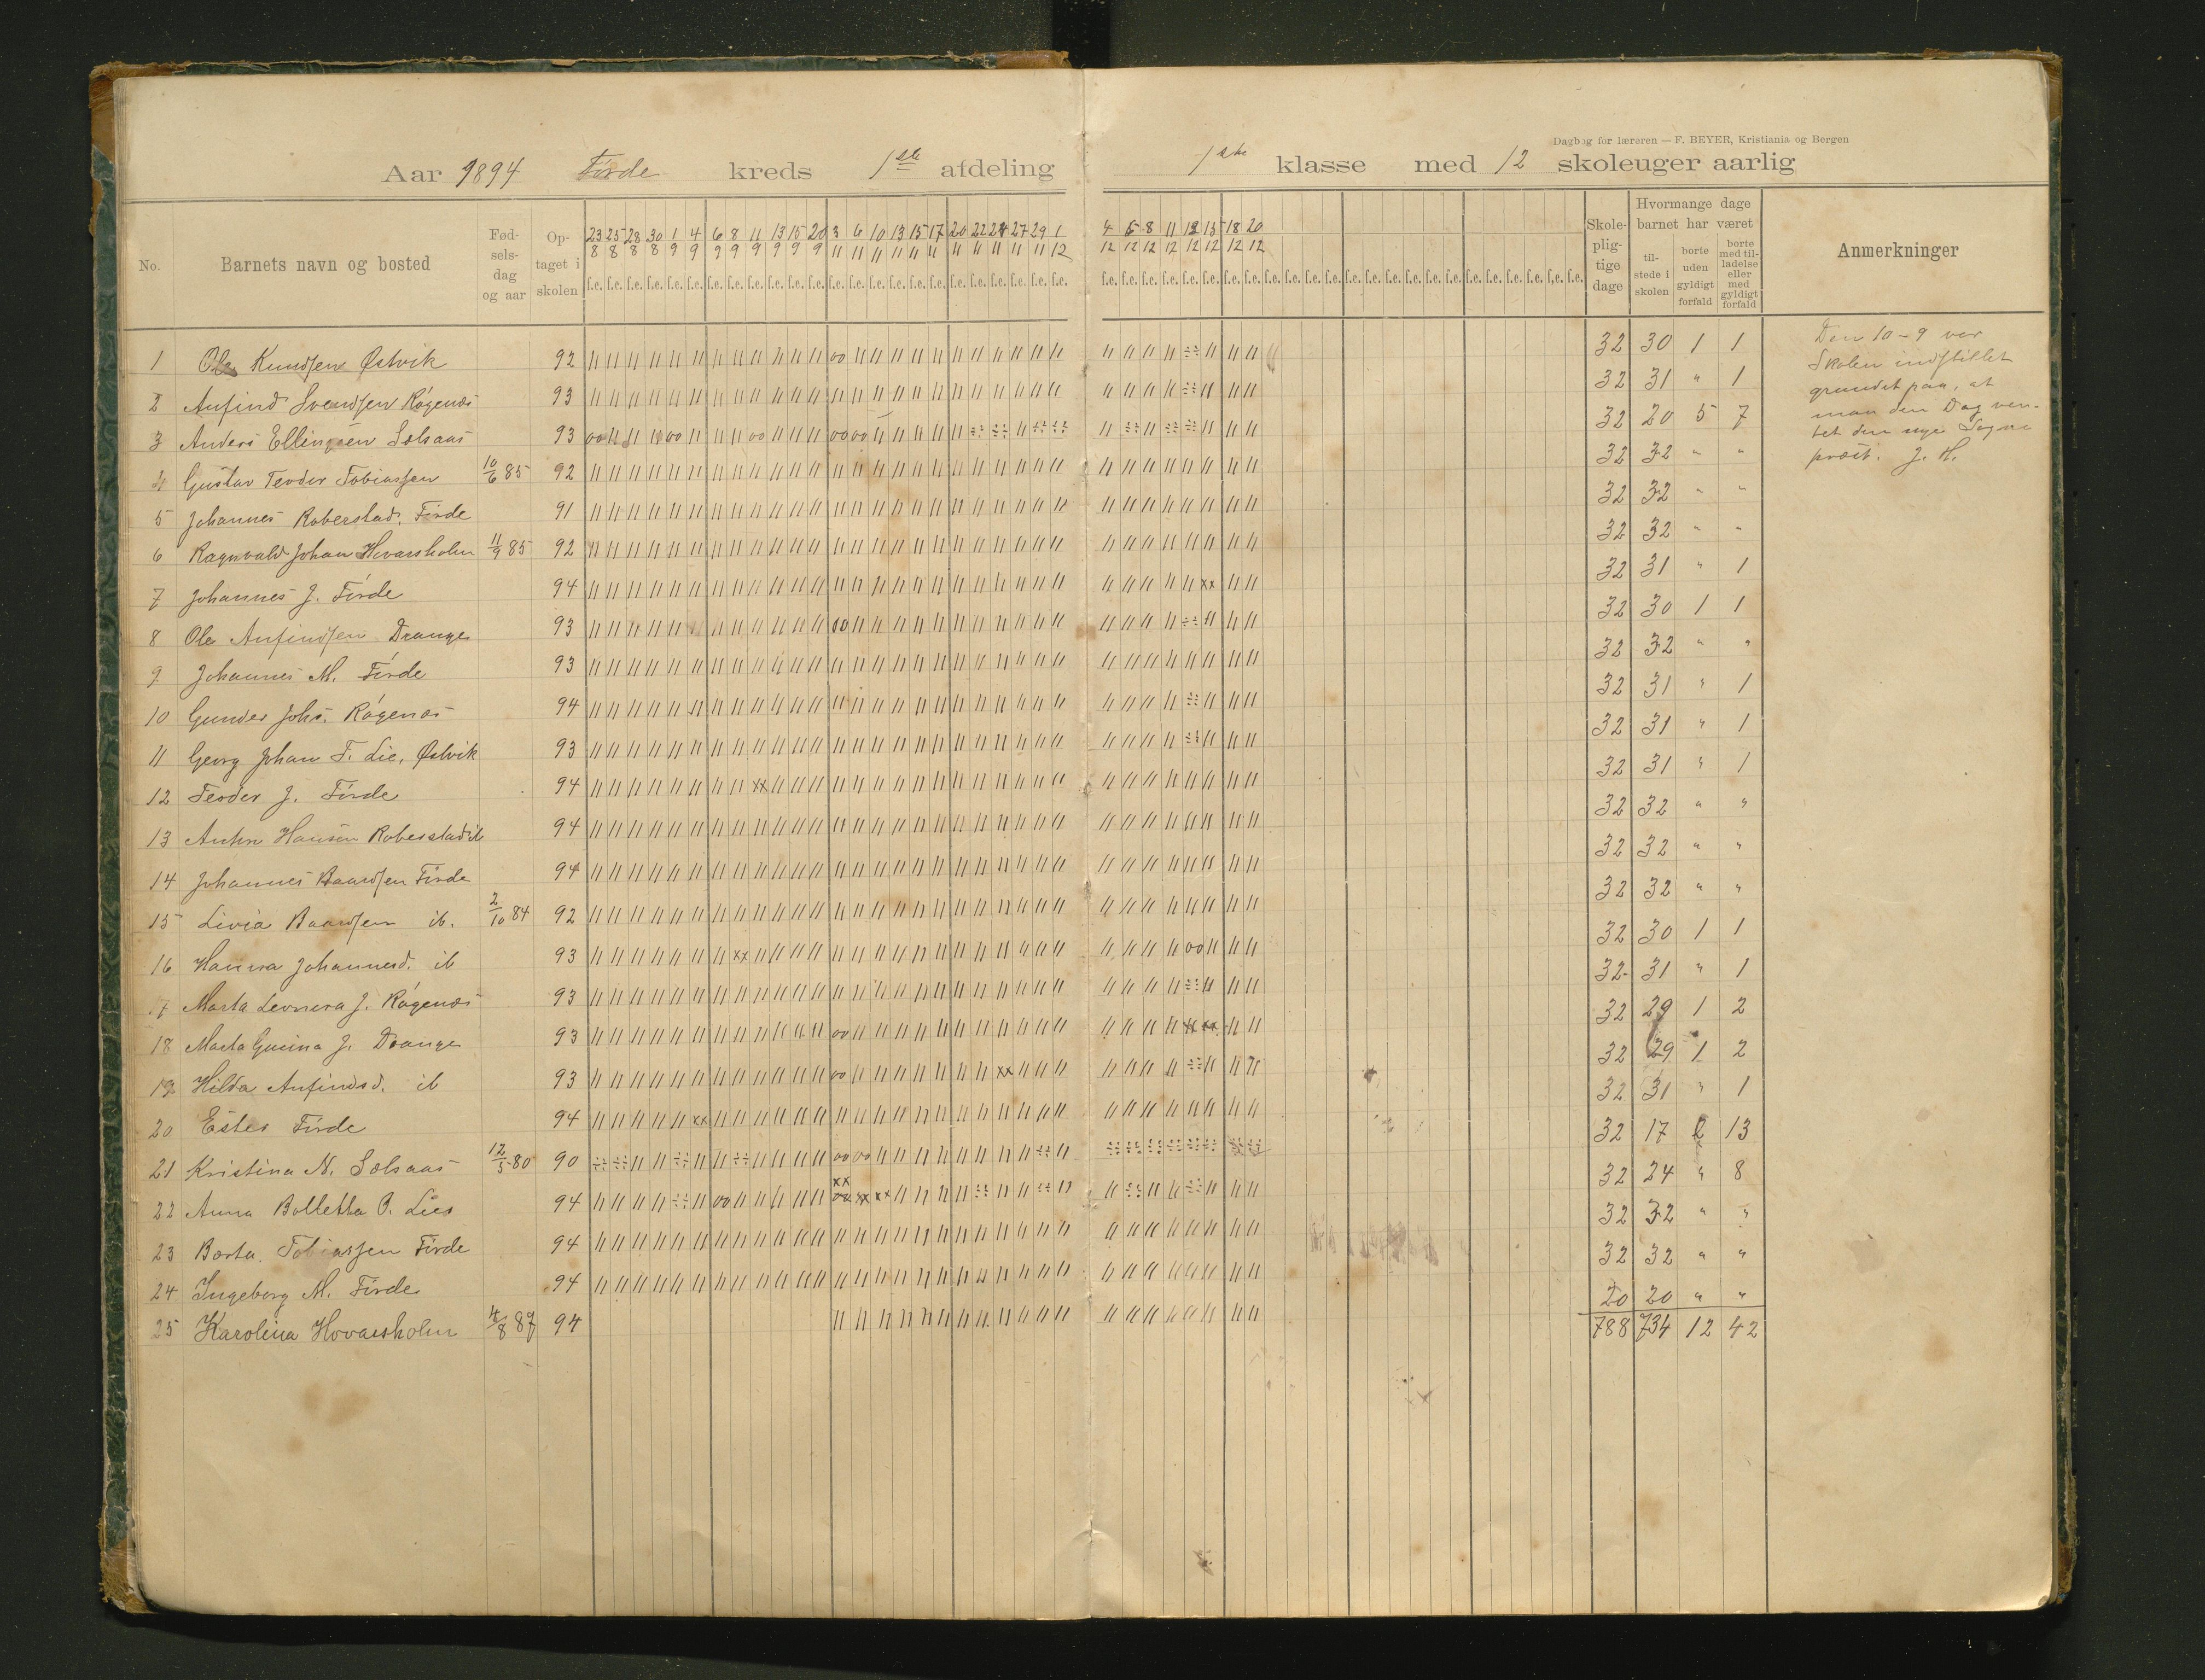 Dagbog for læreren — F. BEYER, Kristiania og Bergen
Aar 1894 Førde kreds 1ste afdeling 1ste klasse med 12 skoleuger aarlig
No. Barnets navn og bosted Fødselsdag og aar Optaget i skolen Skolepligtige dage Hvormange dage barnet har været tilstede i skolen borte uden gyldigt forfald borte med tilladelse eller med gyldigt forfald Anmerkninger
23 25 28 30 1 4 6 8 11 13 15 20 3 6 10 13 15 17 20 22 24 27 29 1 4 6 8 11 12 15 18 20
8 8 8 8 9 9 9 9 9 9 9 9 11 11 11 11 11 11 11 11 11 11 11 12 12 12 12 12 12 12 12 12
1 Ole Knudsen Østvik 92 32 30 1 1
2 Anfind Svendsen Røgenæs 93 32 31 " 1
3 Anders Ellingsen Solsaas 93 32 20 5 7
4 Gustav Teodor Tobiassen 10/6 85 92 32 32 " "
5 Johannes Roberstad, Førde 91 32 32 " "
6 Ragnvald Johan Hovarsholm 11/9 85 92 32 32 " "
7 Johannes J. Førde 94 32 31 " 1
8 Ole Anfindsen Drange 93 32 30 1 1
9 Johannes M. Førde 93 32 32 " "
10 Gunder Johs. Røgenæs 94 32 31 " 1
11 Georg Johan T. Lie, Østvik 93 32 31 " 1
12 Teodor J. Førde 94 32 31 " 1
13 Hansen Roberstad ib 94 32 32 " "
14 Johannes Baardsen Førde 94 32 32 " "
15 Livia Baardsen ib. 2/10 84 92 32 32 " "
16 Hanna Johannesd. ib 93 32 30 1 1
17 Marta J. Røgenæs 93 32 31 " 1
18 Marta Gurina J. Drange 93 32 29 1 2
19 Hilda Anfindsd. ib 93 32 29 1 2
20 Ester Førde 94 32 31 " 1
21 Kristina N. Solsaas 12/5 80 90 32 17 2 13
22 Anna Bolletta Lies 94 32 24 " 8
23 Berta Tobiassen Førde 94 32 32 " "
24 Ingeborg M. Førde 94 32 32 " "
25 Karolina Hovarsholm 4/8 87 94 20 20 " "
788 734 12 42
Den 10-9 var
Skolen indstillet
grundet paa, at
man den Dag ven-
tet den nye Sogne
præst. J. H.